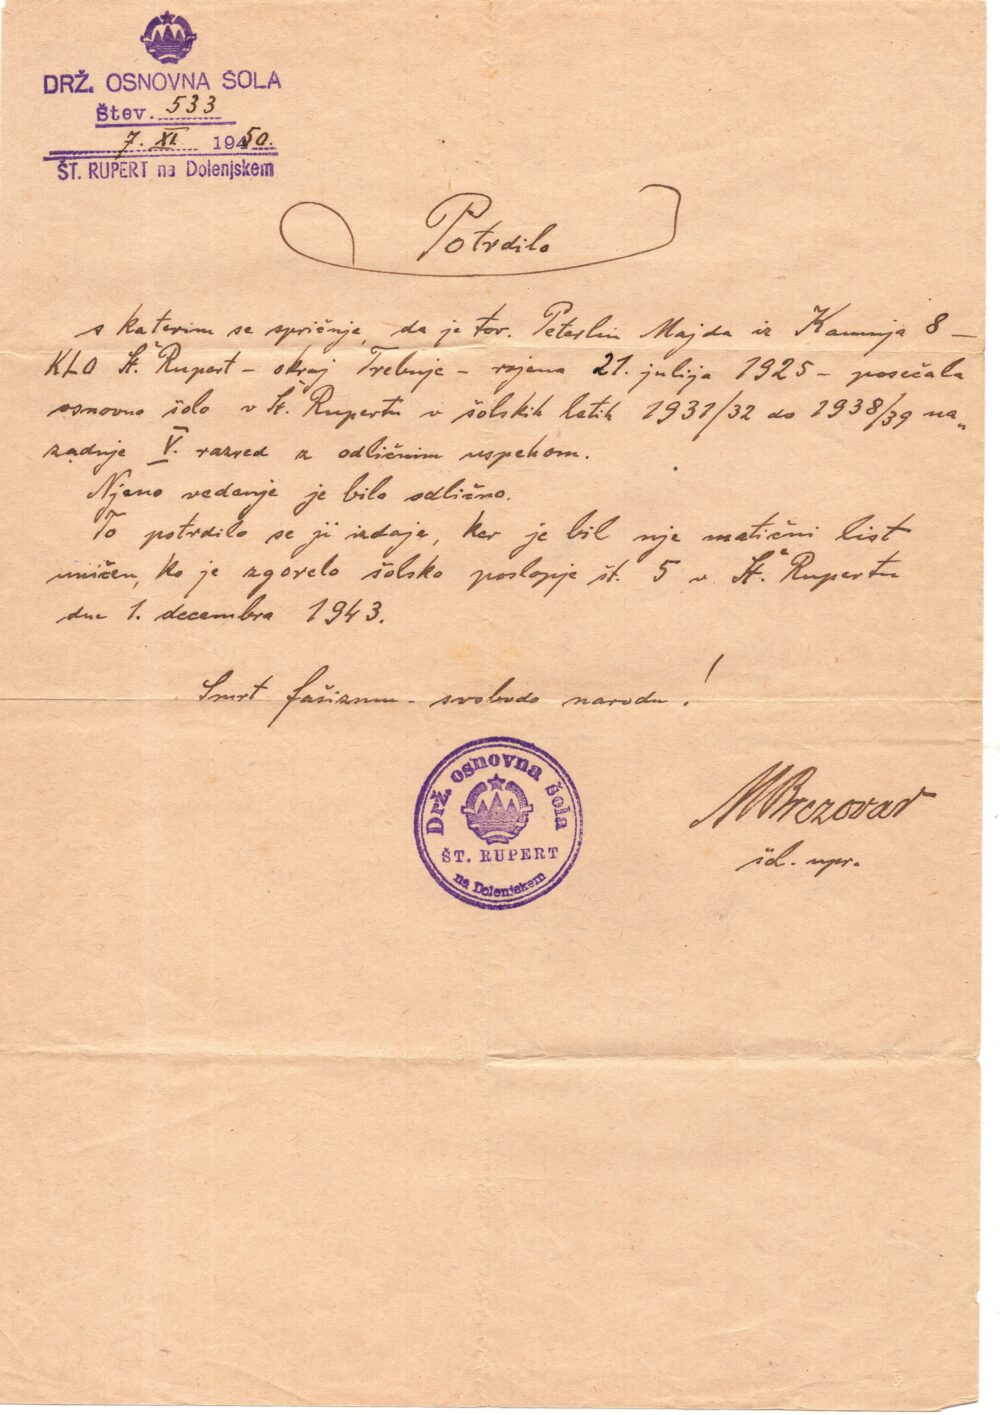 DRŽ. OSNOVNA ŠOLA
Štev. 533
7. XI. 1950.
ŠT. RUPERT na Dolenjskem
Potrdilo
s katerim se spričuje, da je tov. Peterlin Majda iz Kamnja 8 –
KLO Št. Rupert – okraj Trebnje – rojena 21. julija 1925 – posečala
osnovno šolo v Št. Rupertu v šolskih letih 1931/32 do 1938/39 na„
zadnje V. razred z odličnim uspehom.
Njeno vedenje je bilo odlično.
To potrdilo se ji izdaja, ker je bil nje matični list
uničen, ko je zgorelo šolsko poslopje št. 5 v Št. Rupertu
dne 1. decembra 1943.
Smrt fašizmu – svobodo narodu!
Drž. osnovna šola
ŠT. RUPERT
na Dolenjskem
M Brezovar
šol. upr.